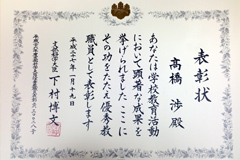 表彰状
髙橋 渉 殿
あなたは学校教育活動
において顕著な成果を
挙げられました ここに
その功をたたえ優秀教
職員として表彰します
平成二十七年一月十九日
文部科学大臣 下村博文